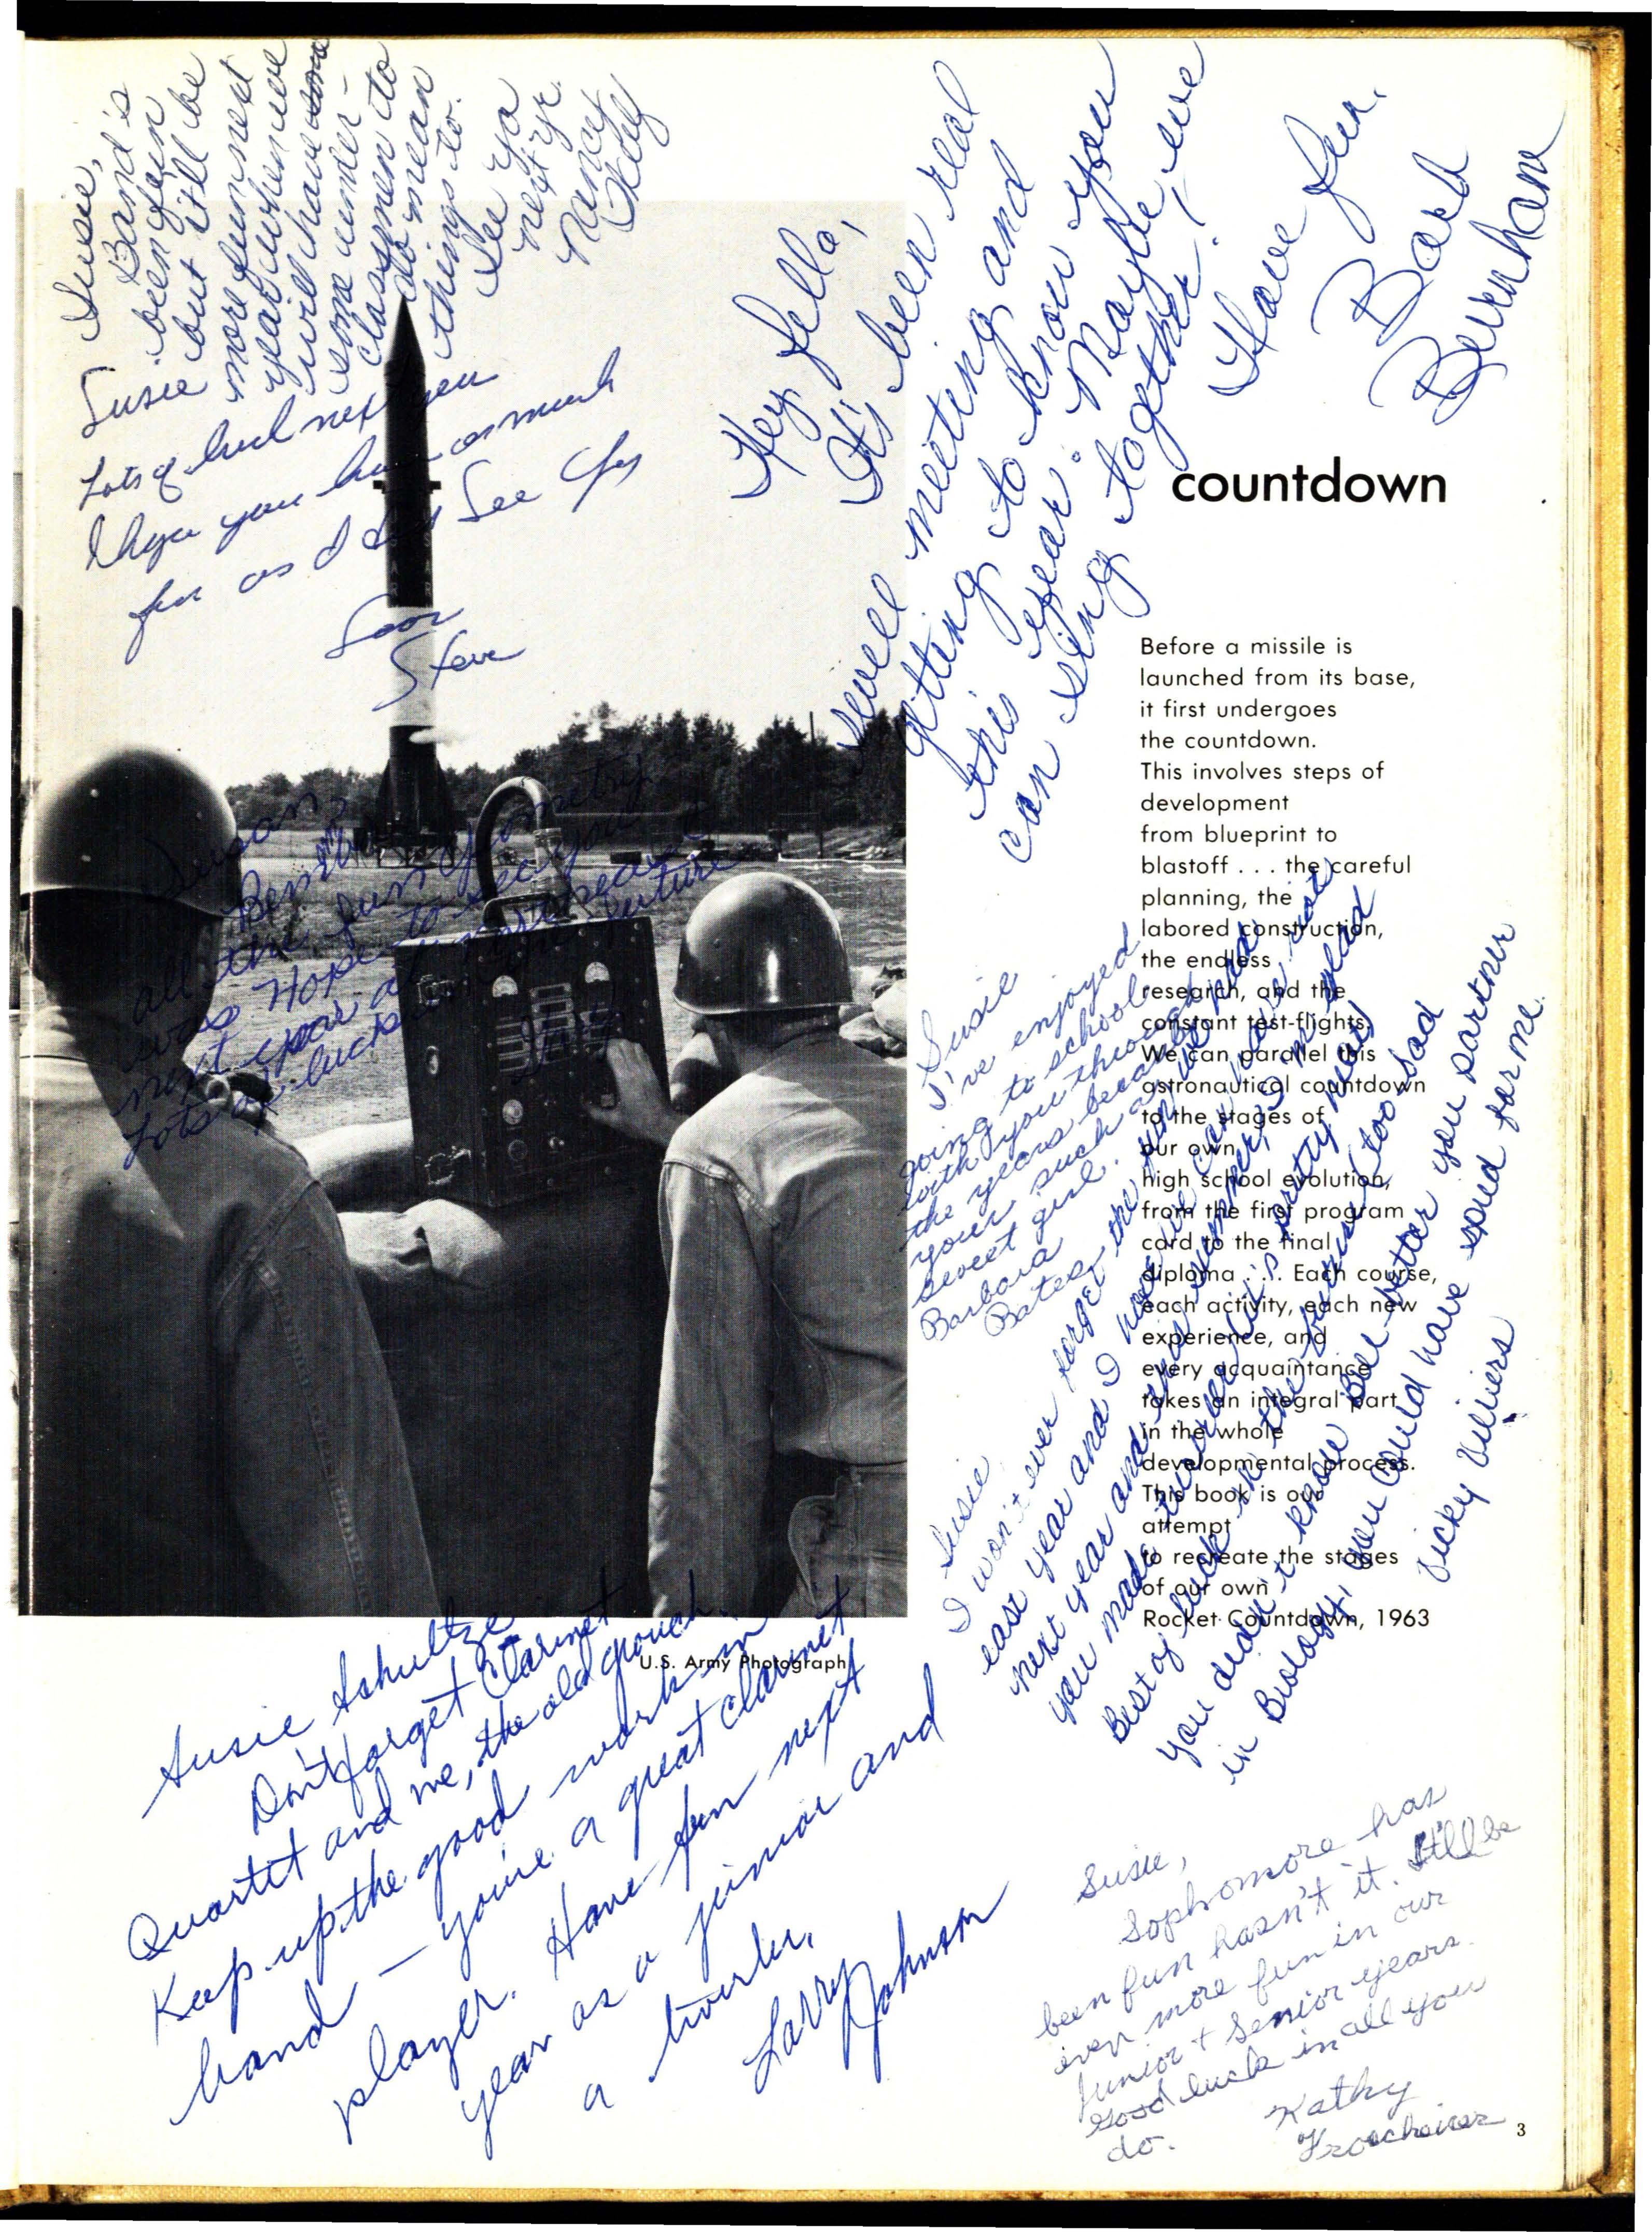 Susie,
Band's
been fun
but it'll be
more fun next
year when we
will have some
some under-
classmen to
do mean
things to.
See ya
next yr.
Nancy
Susie
Lots of luck next year
I hope you have as much
fun as I did See ya
Steve
Hey fella,
It's been real
swell meeting and
getting to know you
this year. Maybe we
can sing together!
Have fun.
Barb
Burnham
countdown
Before a missile is
launched from its base,
it first undergoes
the countdown.
This involves steps of
development
from blueprint to
blastoff . . . the careful
planning, the
labored construction,
the endless
research, and the
constant test-flights.
We can parallel this
astronautical countdown
to the stages of
our own
high school evolution,
from the first program
card to the final
diploma . . . Each course,
each activity, each new
experience, and
every acquaintance
takes an integral part
in the whole
developmental process.
This book is our
attempt
to recreate the stages
of our own
Rocket Countdown, 1963
Susan,
all the fun geometry
was. Hope to see you
next year
Lots of luck in the future
Susie
I've enjoyed
going to school
with you through
the years because
your such a
sweet girl.
Barbara
Bates
Susie
I won't ever forget the fun we had
last year and I hope we can have
next year and this summer. I'm glad
you made twirler
Best of luck in the future! too bad
you didn't know Bill better you partner
in Biology, you could have spied for me.
Vicky Villiers
U.S. Army Photograph
Susie Schultze
Don't forget Clarinet
Quartet and me, the old grouch.
Keep up the good work in
band - you're a great clarinet
player. Have fun next
year as a junior and
a twirler.
Larry
Johnson
Susie,
Sophomore has
been fun hasn't it. It'll be
even more fun in our
Junior + Senior years.
Good luck in all you
do.
Kathy
3